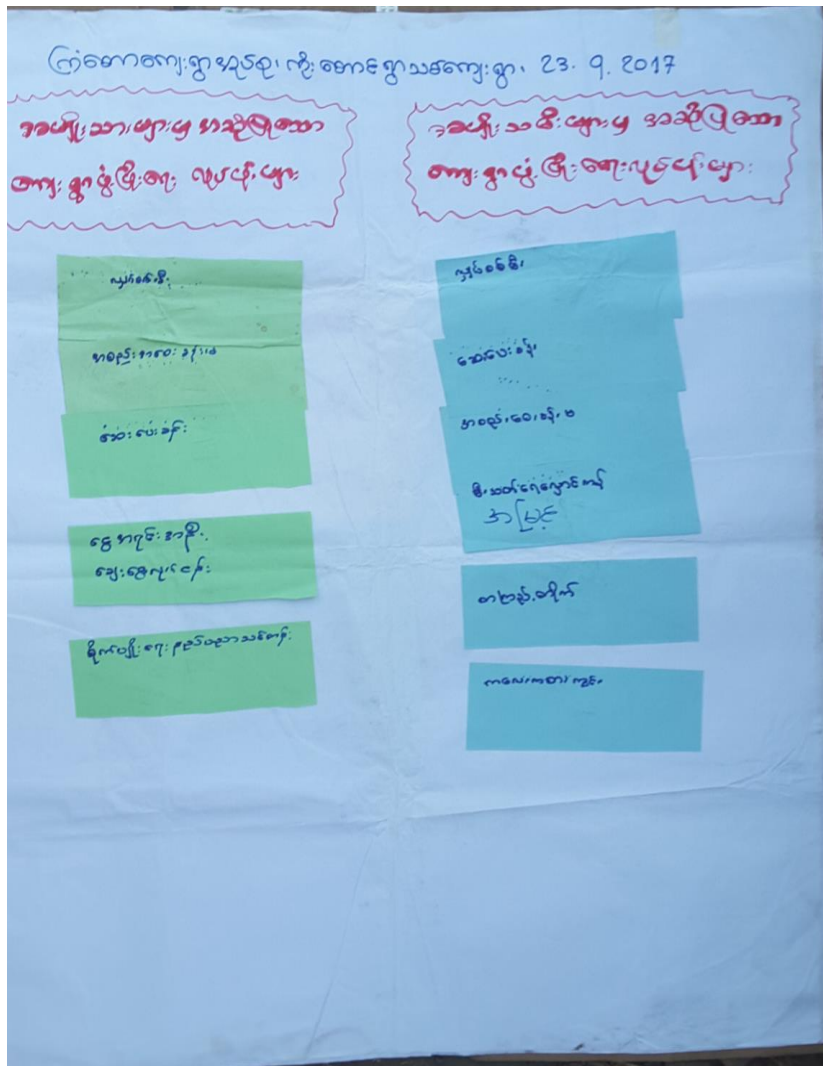 ကြံတောကျေးရွာအုပ်စု၊ ကိုးတောင်ရွာသစ်ကျေးရွာ၊ 23. 9. 2017
အမျိုးသားများမှ အဆိုပြုသော
ကျေးရွာဖွံ့ဖြိုးရေး လုပ်ငန်းများ
လျှပ်စစ်မီး
အစည်းအဝေးခန်းမ
ဆေးပေးခန်း
ငွေအရင်းအနှီး
ချေးငွေလုပ်ငန်း
စိုက်ပျိုးရေးနည်းပညာသင်တန်း
အမျိုးသမီးများမှ အဆိုပြုသော
ကျေးရွာဖွံ့ဖြိုးရေးလုပ်ငန်းများ
လျှပ်စစ်မီး
ဆေးပေးခန်း
အစည်းဝေးခန်းမ
မီးသတ်ရေလှောင်ကန်
အမြင့်
စာကြည့်တိုက်
ကလေးကစားကွင်း